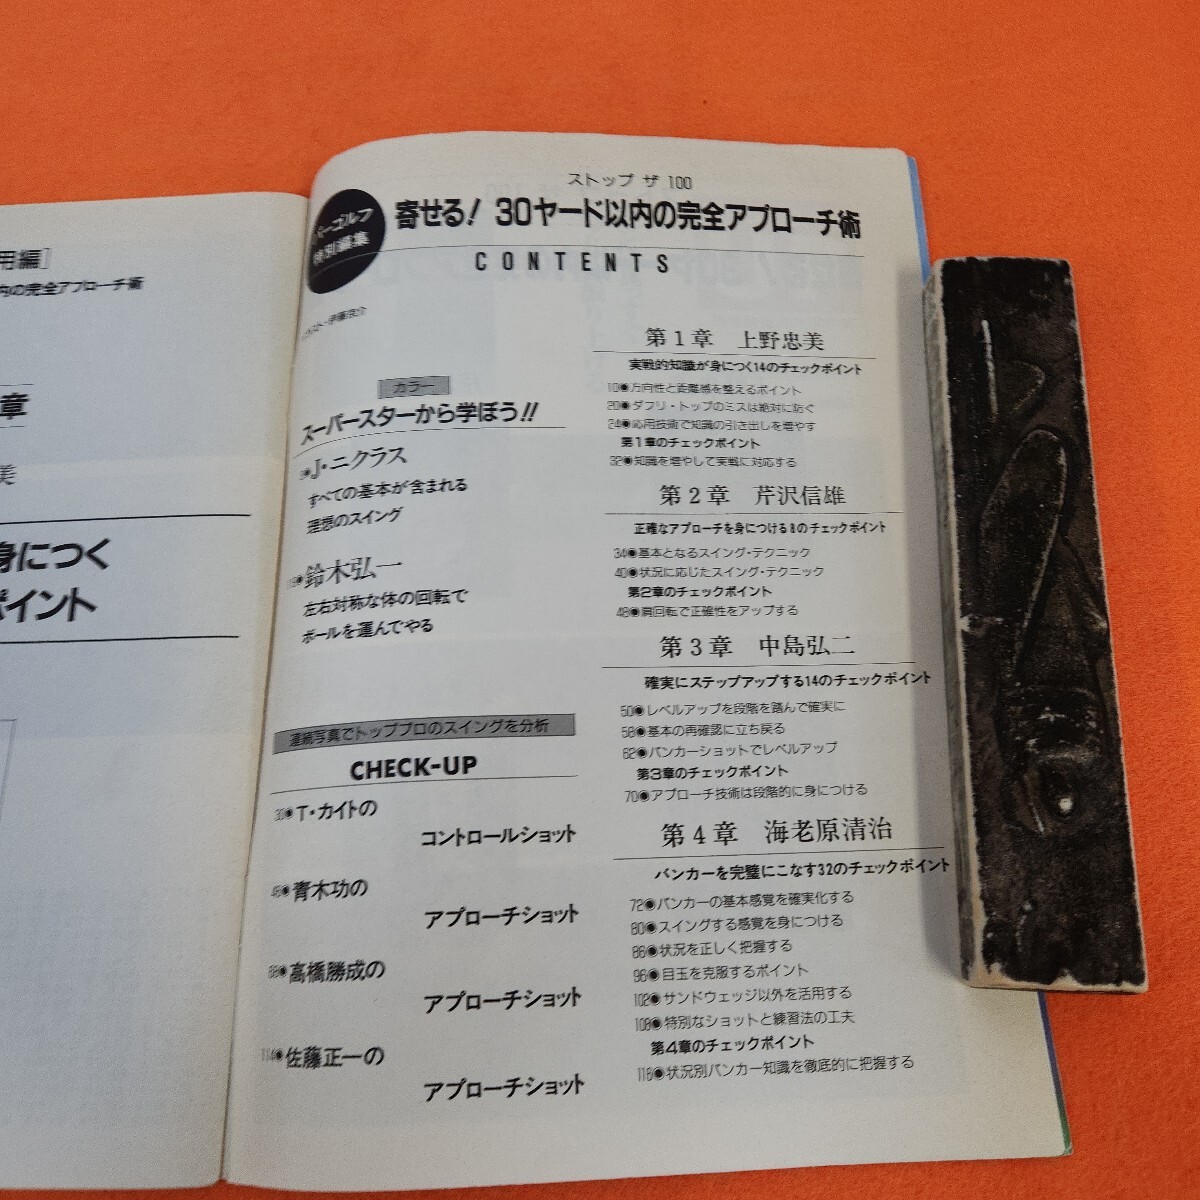 用編]
内の完全アプローチ術
章
美
身につく
ポイント
パーゴルフ
特別編集
ストップ ザ 100
寄せる! 30ヤード以内の完全アプローチ術
CONTENTS
カラー
スーパースターから学ぼう!!
J・ニクラス
すべての基本が含まれる
理想のスイング
鈴木弘一
左右対称な体の回転で
ボールを運んでやる
連続写真でトッププロのスイングを分析
CHECK-UP
30●T・カイトの
コントロールショット
青木功の
アプローチショット
高橋勝成の
アプローチショット
114●佐藤正一の
アプローチショット
第1章 上野忠美
実戦的知識が身につく14のチェックポイント
10●方向性と距離感を整えるポイント
20●ダフリ・トップのミスは絶対に防ぐ
24●応用技術で知識の引き出しを増やす
第1章のチェックポイント
32●知識を増やして実戦に対応する
第2章 芹沢信雄
正確なアプローチを身につける8のチェックポイント
34●基本となるスイング・テクニック
40●状況に応じたスイング・テクニック
第2章のチェックポイント
48●肩回転で正確性をアップする
第3章 中島弘二
確実にステップアップする14のチェックポイント
50●レベルアップを段階を踏んで確実に
58●基本の再確認に立ち戻る
62●バンカーショットでレベルアップ
第3章のチェックポイント
70●アプローチ技術は段階的に身につける
第4章 海老原清治
バンカーを完璧にこなす32のチェックポイント
72●バンカーの基本感覚を確実化する
80●スイングする感覚を身につける
86●状況を正しく把握する
96●目玉を克服するポイント
102●サンドウェッジ以外を活用する
108●特別なショットと練習法の工夫
第4章のチェックポイント
116●状況別バンカー知識を徹底的に把握する